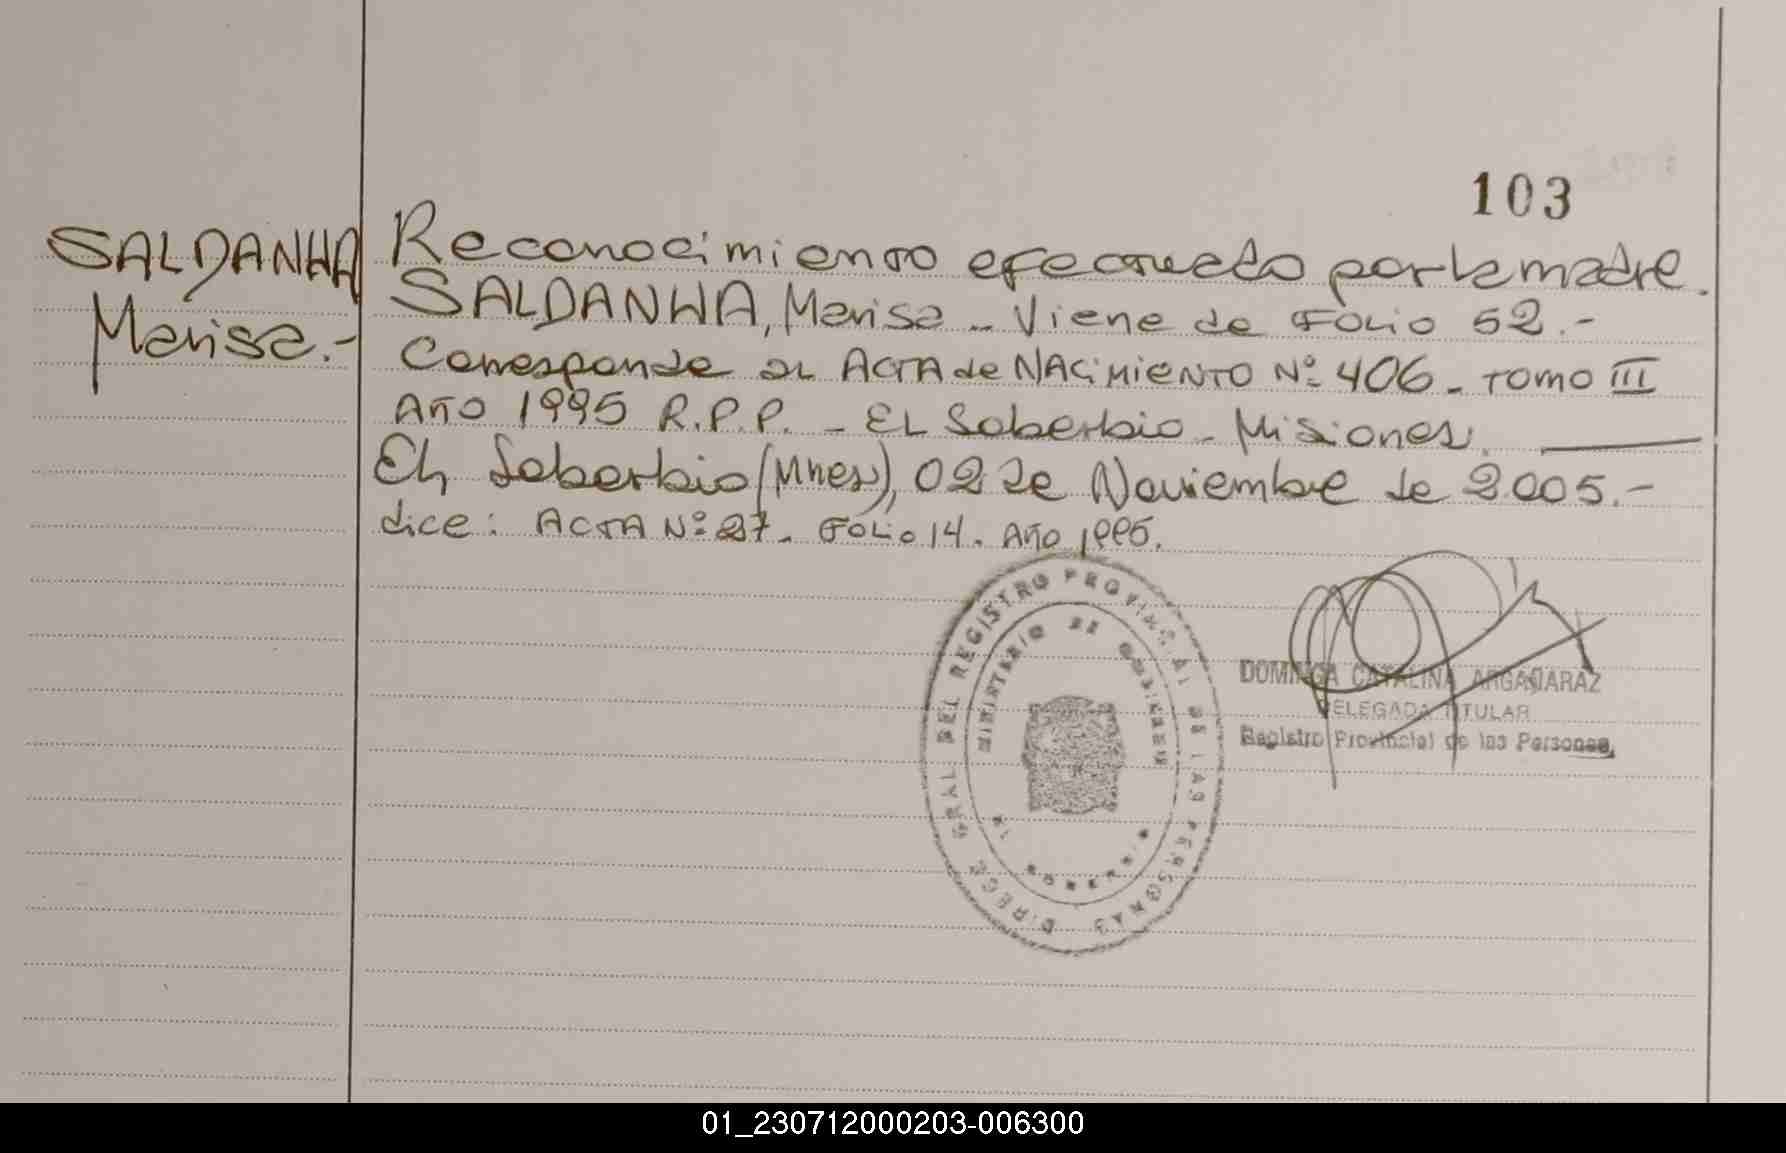 103
SALDANHA
Marisa.-
Reconocimiento efectuado por la madre.
SALDANHA, Marisa - Viene de Folio 52.-
Corresponde al ACTA de NACIMIENTO Nº 406 - TOMO III
AÑO 1995 R.P.P. - EL Soberbio - Misiones.
El Soberbio (Mnes), 02 de Noviembre de 2005.-
dice: ACTA Nº 27. FOLIO 14. AÑO 1995.
DIRECC GRAL DEL REGISTRO PROVINCIAL DE LAS PERSONAS
MINISTERIO DE GOBIERNO
MISIONES
DOMINGA CATALINA ARGAÑARAZ
DELEGADA TITULAR
Registro Provincial de las Personas
01_230712000203-006300